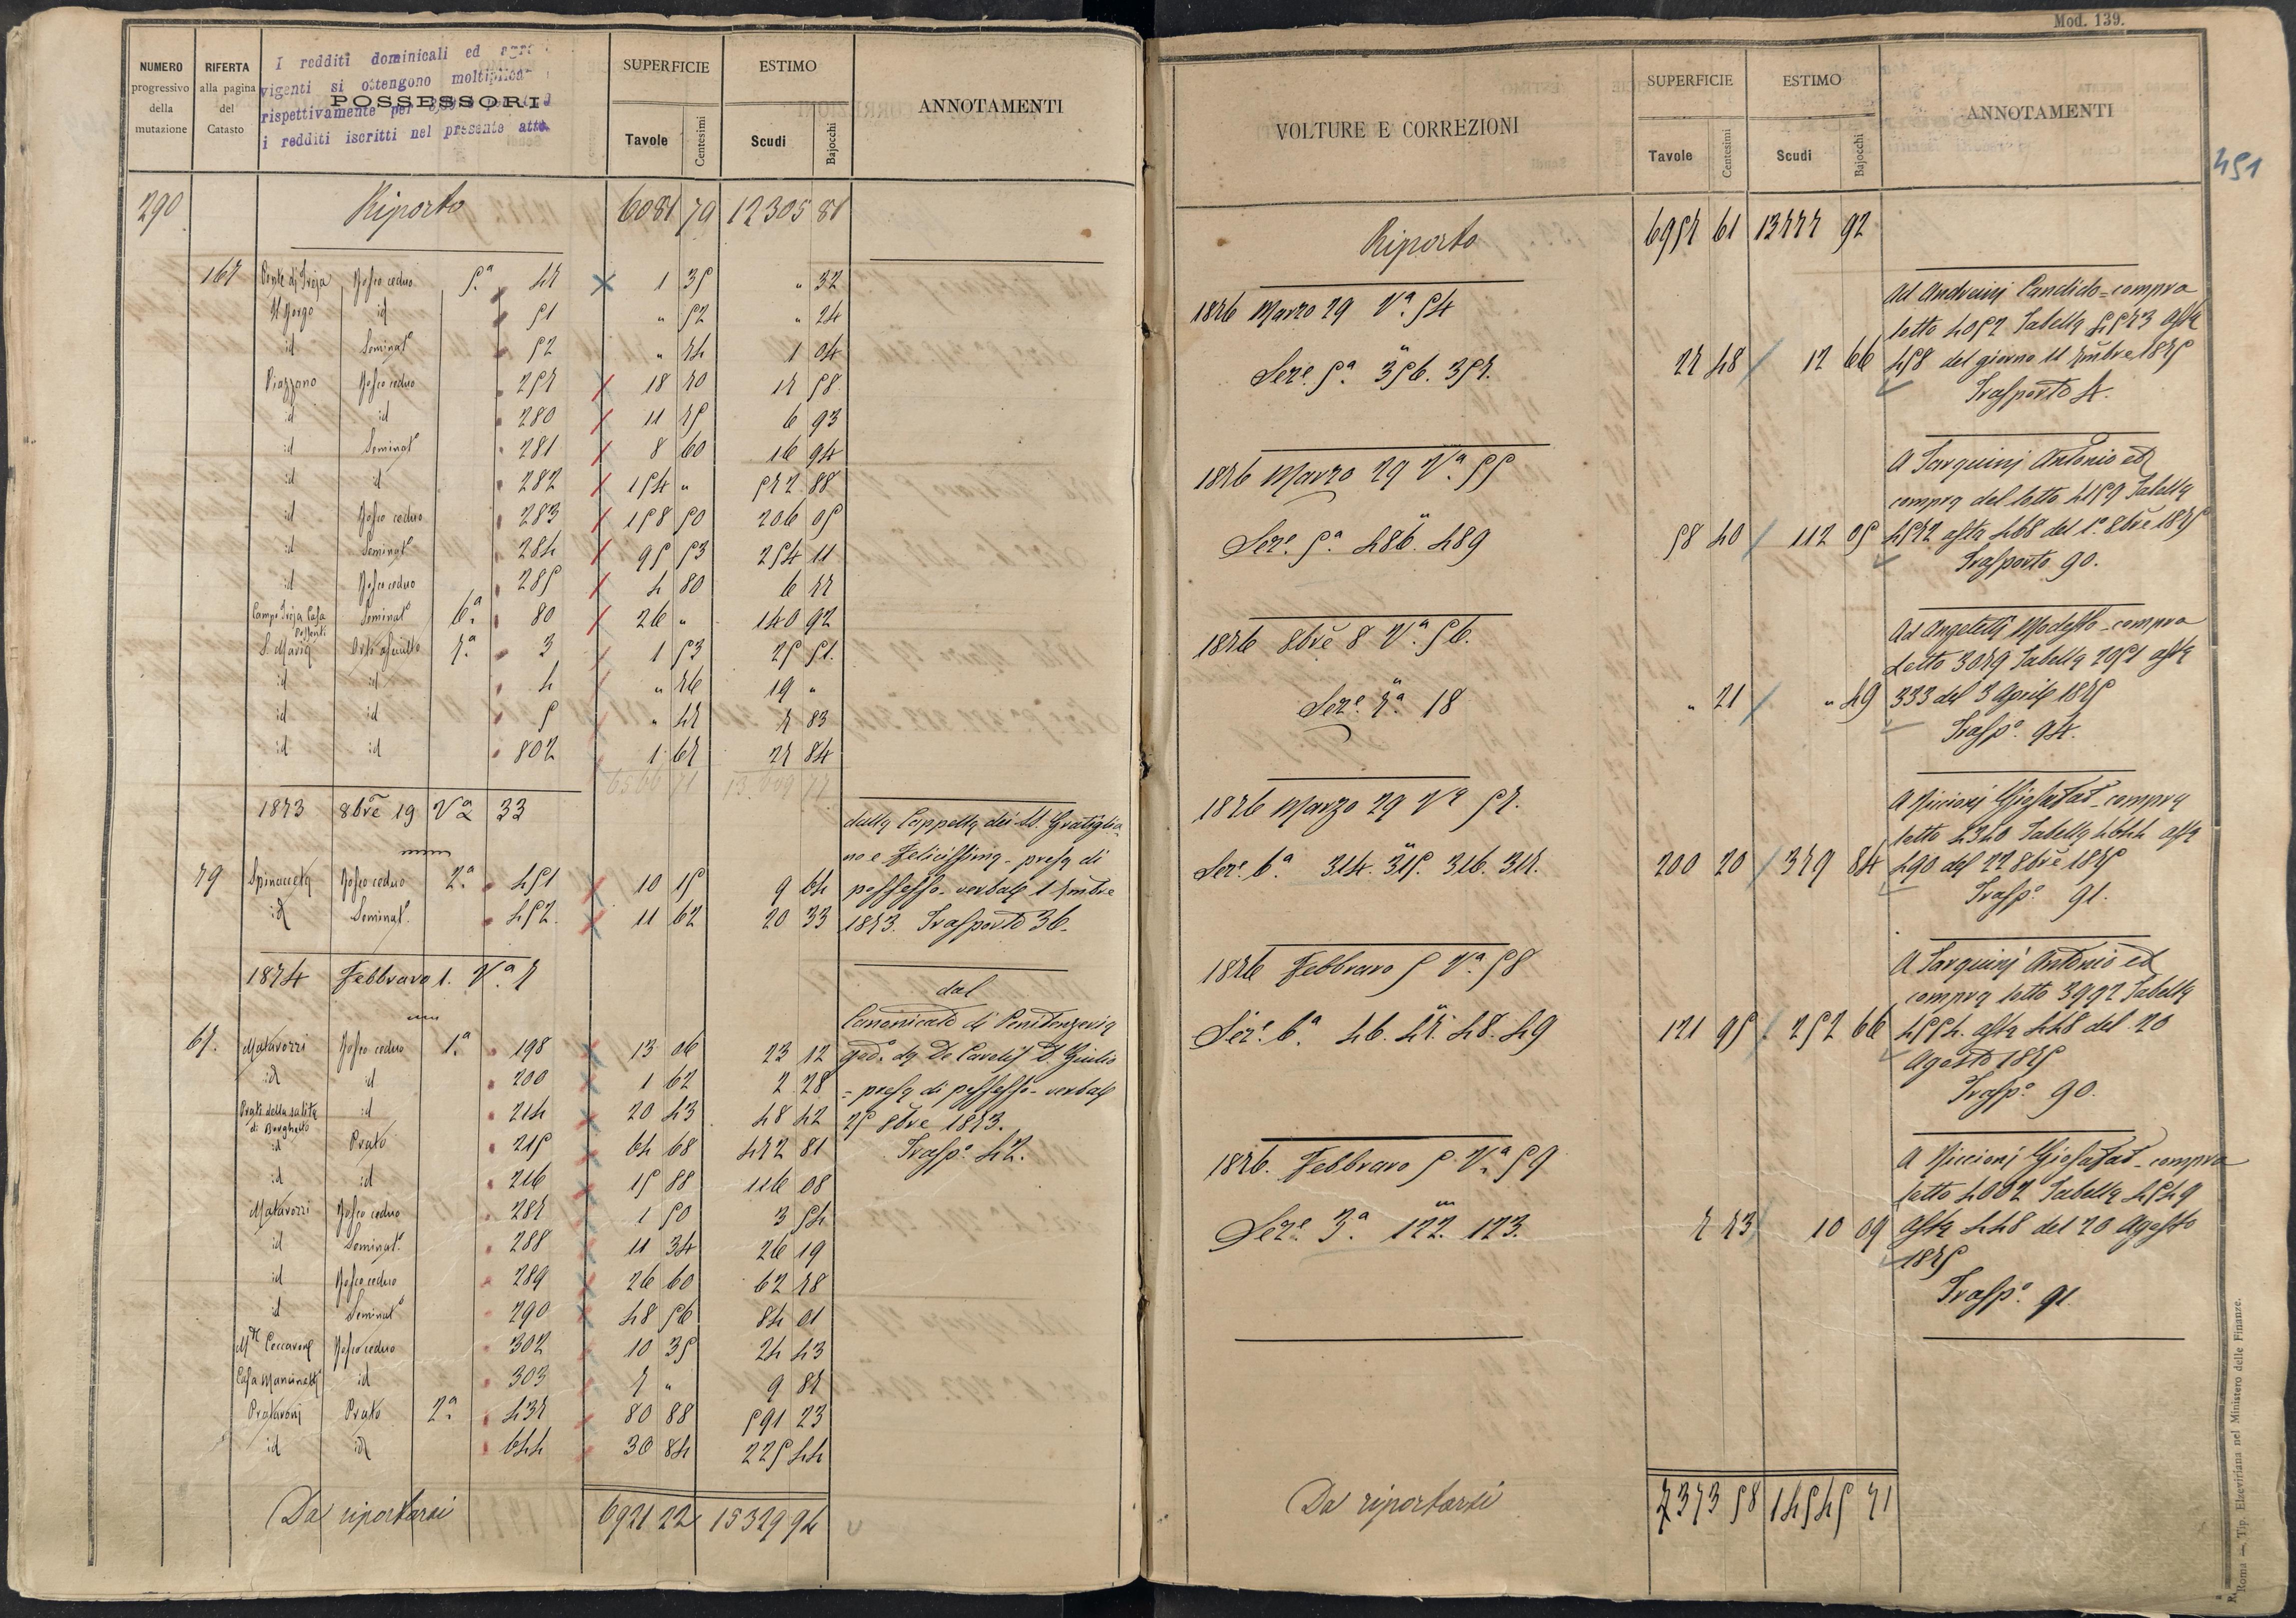 NUMERO progressivo della mutazione
RIFERTA alla pagina del Catasto
I redditi dominicali ed
vigenti si ottengono
POSSESSORI
rispettivamente per
i redditi iscritti nel presente atto
SUPERFICIE Tavole Centesimi
ESTIMO Scudi Bajocchi
ANNOTAMENTI
290 Riporto 6081 79 12305 81
167 Ponte di Treja Bosco ceduo 5ª 47 1 35 " 32
Il Gorgo id 51 " 52 " 24
id Seminatº 52 " 74 1 04
Piazzano Bosco ceduo 257 18 70 17 58
id id 280 11 75 6 93
id Seminatº 281 8 60 16 94
id id 282 154 " 572 88
id Bosco ceduo 283 158 50 206 05
id Seminatº 284 95 53 254 11
id Bosco ceduo 285 4 80 6 77
Campo Treja Casa Seminatº 6ª 80 26 " 140 92
S. Maria Orto asciutto 7ª 3 1 53 25 51
id id 4 " 76 19 "
id id 5 " 47 7 83
id id 802 1 67 27 84
1873 8bre 19 Vª 33
dalla Cappella dei SS. Gratiglia-
no e Felicissima - presa di
79 Spinaceta Bosco ceduo 2ª 451 10 15 9 64 possesso - verbale 1 7mbre
id Seminatº 452 11 62 20 33 1873. Trasporto 36.
1874 Febbraro 1. Vª 7
dal
Canonicato di Penitenzeria
67. Matavozzi Bosco ceduo 1ª 198 13 06 23 12 god. da De Carolis D. Giulio
id id 200 1 62 2 28 = presa di possesso - verbale
Prati della salita di Borghetto id 214 20 43 48 42 25 8bre 1873.
id Prato 215 64 68 472 81 Traspº 42.
id id 216 15 88 116 08
Matavozzi Bosco ceduo 287 1 50 3 54
id Seminatº 288 11 34 26 19
id Bosco ceduo 289 26 60 62 78
id Seminatº 290 48 56 84 01
Bosco ceduo 302 10 35 24 43
Casa Mancinetti id 303 7 " 9 87
Prataroni Prato 2ª 437 80 88 591 23
id id 644 30 84 225 44
Da riportarsi 6921 22 15329 94
Mod. 139.
VOLTURE E CORREZIONI
SUPERFICIE Tavole Centesimi
ESTIMO Scudi Bajocchi
ANNOTAMENTI
451
Riporto 6957 61 13777 92
1876 Marzo 29 Vª 54
Ad Andreini Candido = compra
lotto 4052 Tabella 4573 asta
Seze 5ª 356. 357. 27 48 12 66 458 del giorno 11 7mbre 1875
Trasporto 4.
1876 Marzo 29 Vª 55
A Tarquinj Antonio ed
compra del lotto 4159 Tabella
Seze 5ª 486. 489 58 40 112 05 4572 asta 468 del 1º 8bre 1875
Trasporto 90.
1876 8bre 8 Vª 56.
Ad Angeletti Modesto - compra
Lotto 3079 Tabella 2051 asta
Seze 7ª 18 " 21 " 49 333 del 3 Aprile 1875
Traspº 94.
1876 Marzo 29 Vª 57.
A Riccioni Giosafat - compra
lotto 4340 Tabella 4644 asta
Seze 6ª 314. 315. 316. 317. 200 20 379 84 490 del 22 8bre 1875
Traspº 91.
1876 Febbraro 5 Vª 58
A Tarquinj Antonio ed
compra lotto 3992 Tabella
Seze 6ª 46. 47. 48. 49 121 95 252 66 4554. asta 448 del 20
Agosto 1875
Traspº 90.
1876. Febbraro 5 Vª 59
A Riccioni Giosafat - compra
lotto 4002 Tabella 4549
Seze 3ª 122. 123. 7 73 10 09 asta 448 del 20 Agosto
1875
Traspº 91.
Da riportarsi 7373 58 14545 71
Roma — Tip. Elzeviriana nel Ministero delle Finanze.